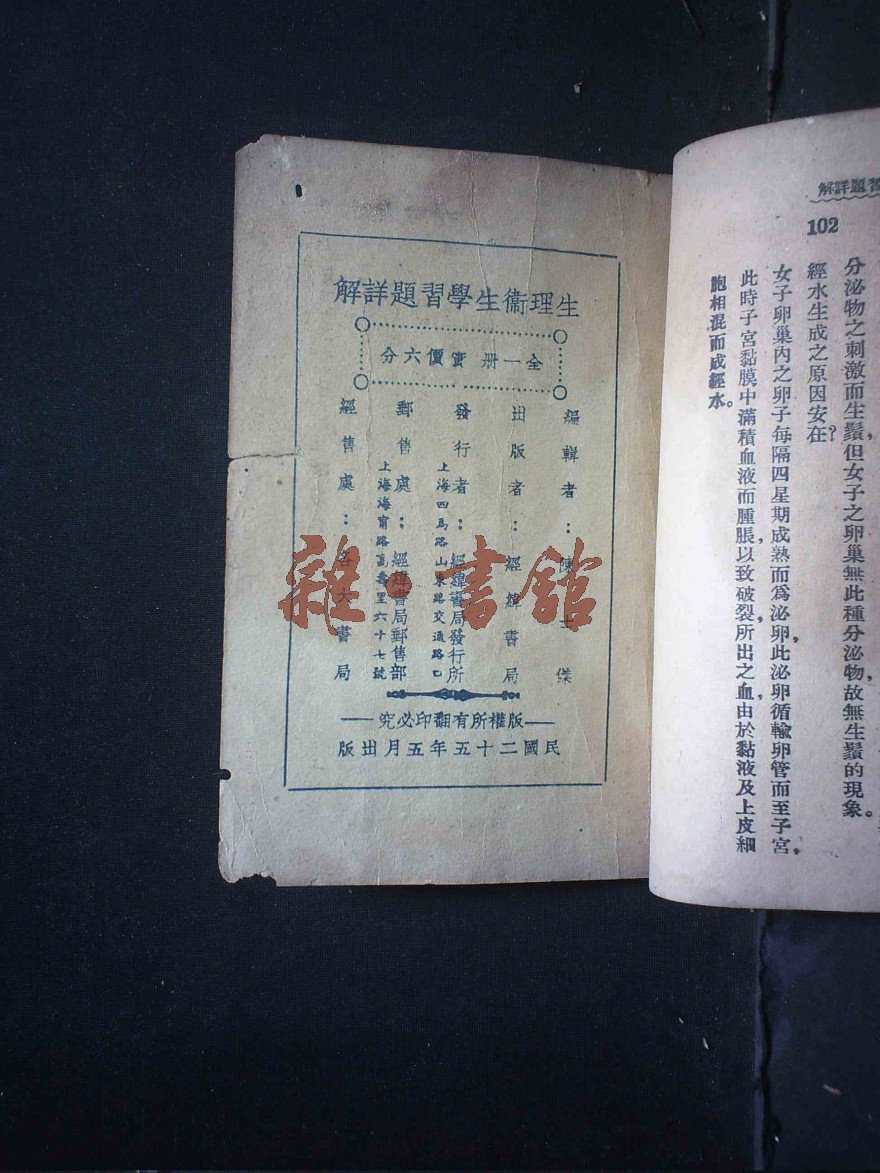 生理衞生學習題詳解
全一册 實價六分
編輯者：陳士傑
出版者：經緯書局
發行者：經緯書局發行所
上海四馬路山東路交通路口
郵售處：經緯書局郵售部
上海海甯路萬壽里六十七號
經售處：各大書局
版權所有翻印必究
民國二十五年五月出版
雜·書館
習題詳解
102
分泌物之刺激而生鬚，但女子之卵巢無此種分泌物，故無生鬚的現象。
經水生成之原因安在？
女子卵巢內之卵子每隔四星期成熟而爲泌卵，此泌卵循輸卵管而至子宮，
此時子宮黏膜中滿積血液而腫脹，以致破裂，所出之血，由於黏液及上皮細
胞相混而成經水。